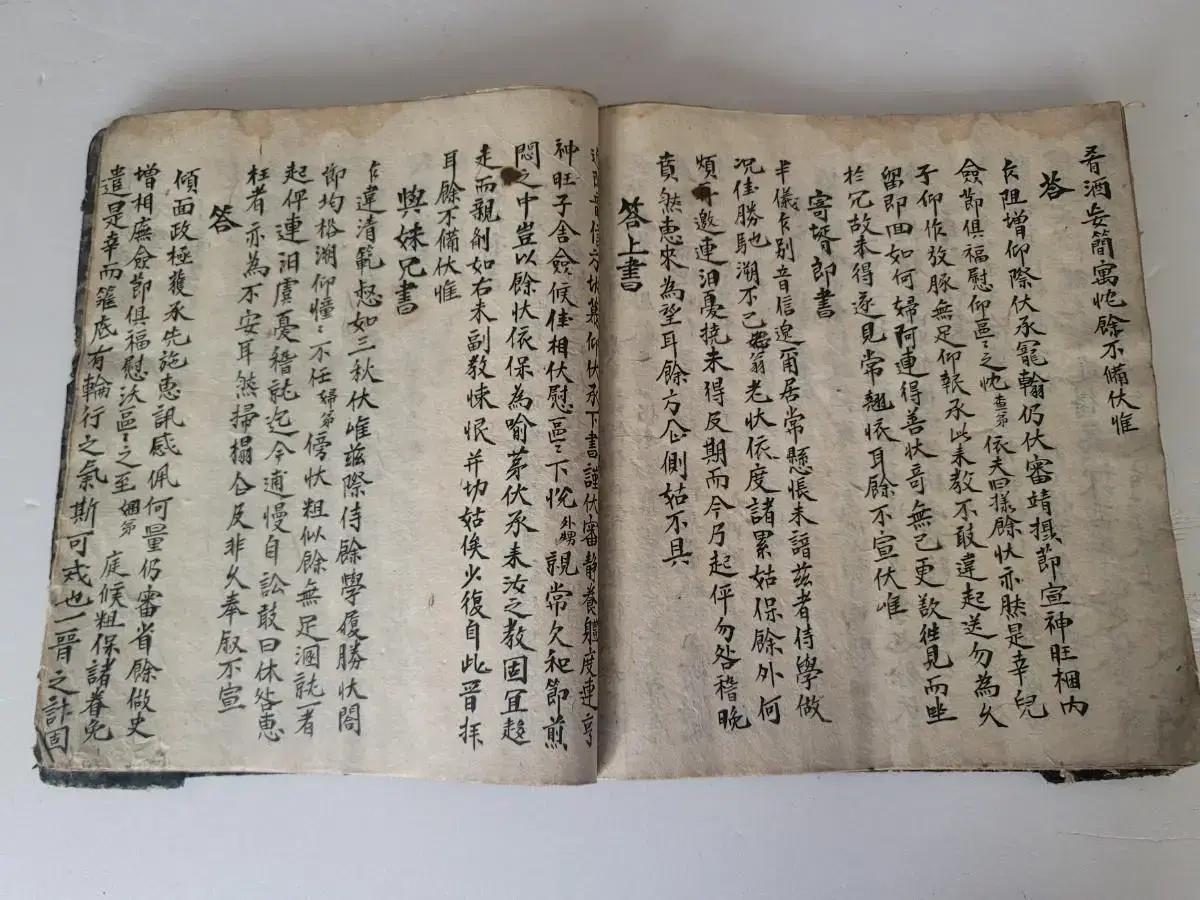 肴酒妄簡寓忱餘不備伏惟
答
乍阻增仰際伏承寵翰仍伏審靖攝節宣神旺梱內
僉節俱福慰仰區〻之忱査弟依夫曰樣餘狀亦朕是幸兒
子仰作放豚無足仰報承此来教不敢違起送勿為久
留即回如何婦阿連得善狀奇無已更歎徃見而𫝶
於冗故未得遂見常翹恨耳餘不宣伏惟
寄壻郎書
半儀乍別音信邈爾居常懸悵未諳玆者侍學做
况佳勝馳溯不已愚翁老狀依度諸累姑保餘外何
煩再邀連汨憂撓未得反期而今乃起伻勿咎稽晚
賁然惠來為望耳餘方企側姑不具
答上書
仰伏承下書謹伏審靜養軆度連亨
神旺子舍僉候佳相伏慰區〻下忱外甥親常欠和節煎
悶之中豈以餘狀依保為喻茅伏承来汝之教固宜趍
走而親劑如右未副教悚恨并切姑俟少復自此晉拜
耳餘不備伏惟
與妹兄書
乍違清範惄如三秋伏惟玆際侍餘學履勝伏閤
節均格溯仰憧〻不任婦弟傍狀粗似餘無足溷就者
起伻連汨虞憂稽就迄今逋慢自訟敢曰休咎惠
枉者亦為不安耳然掃搨企反非久奉叙不宣
答
傾面政極獲承先施惠訊感佩何量仍審省餘做史
增相廡僉節俱福慰沃區〻之至姻弟庭候粗保諸眷免
遣是幸而籠底有輪行之氣斯可戒也一晉之計固